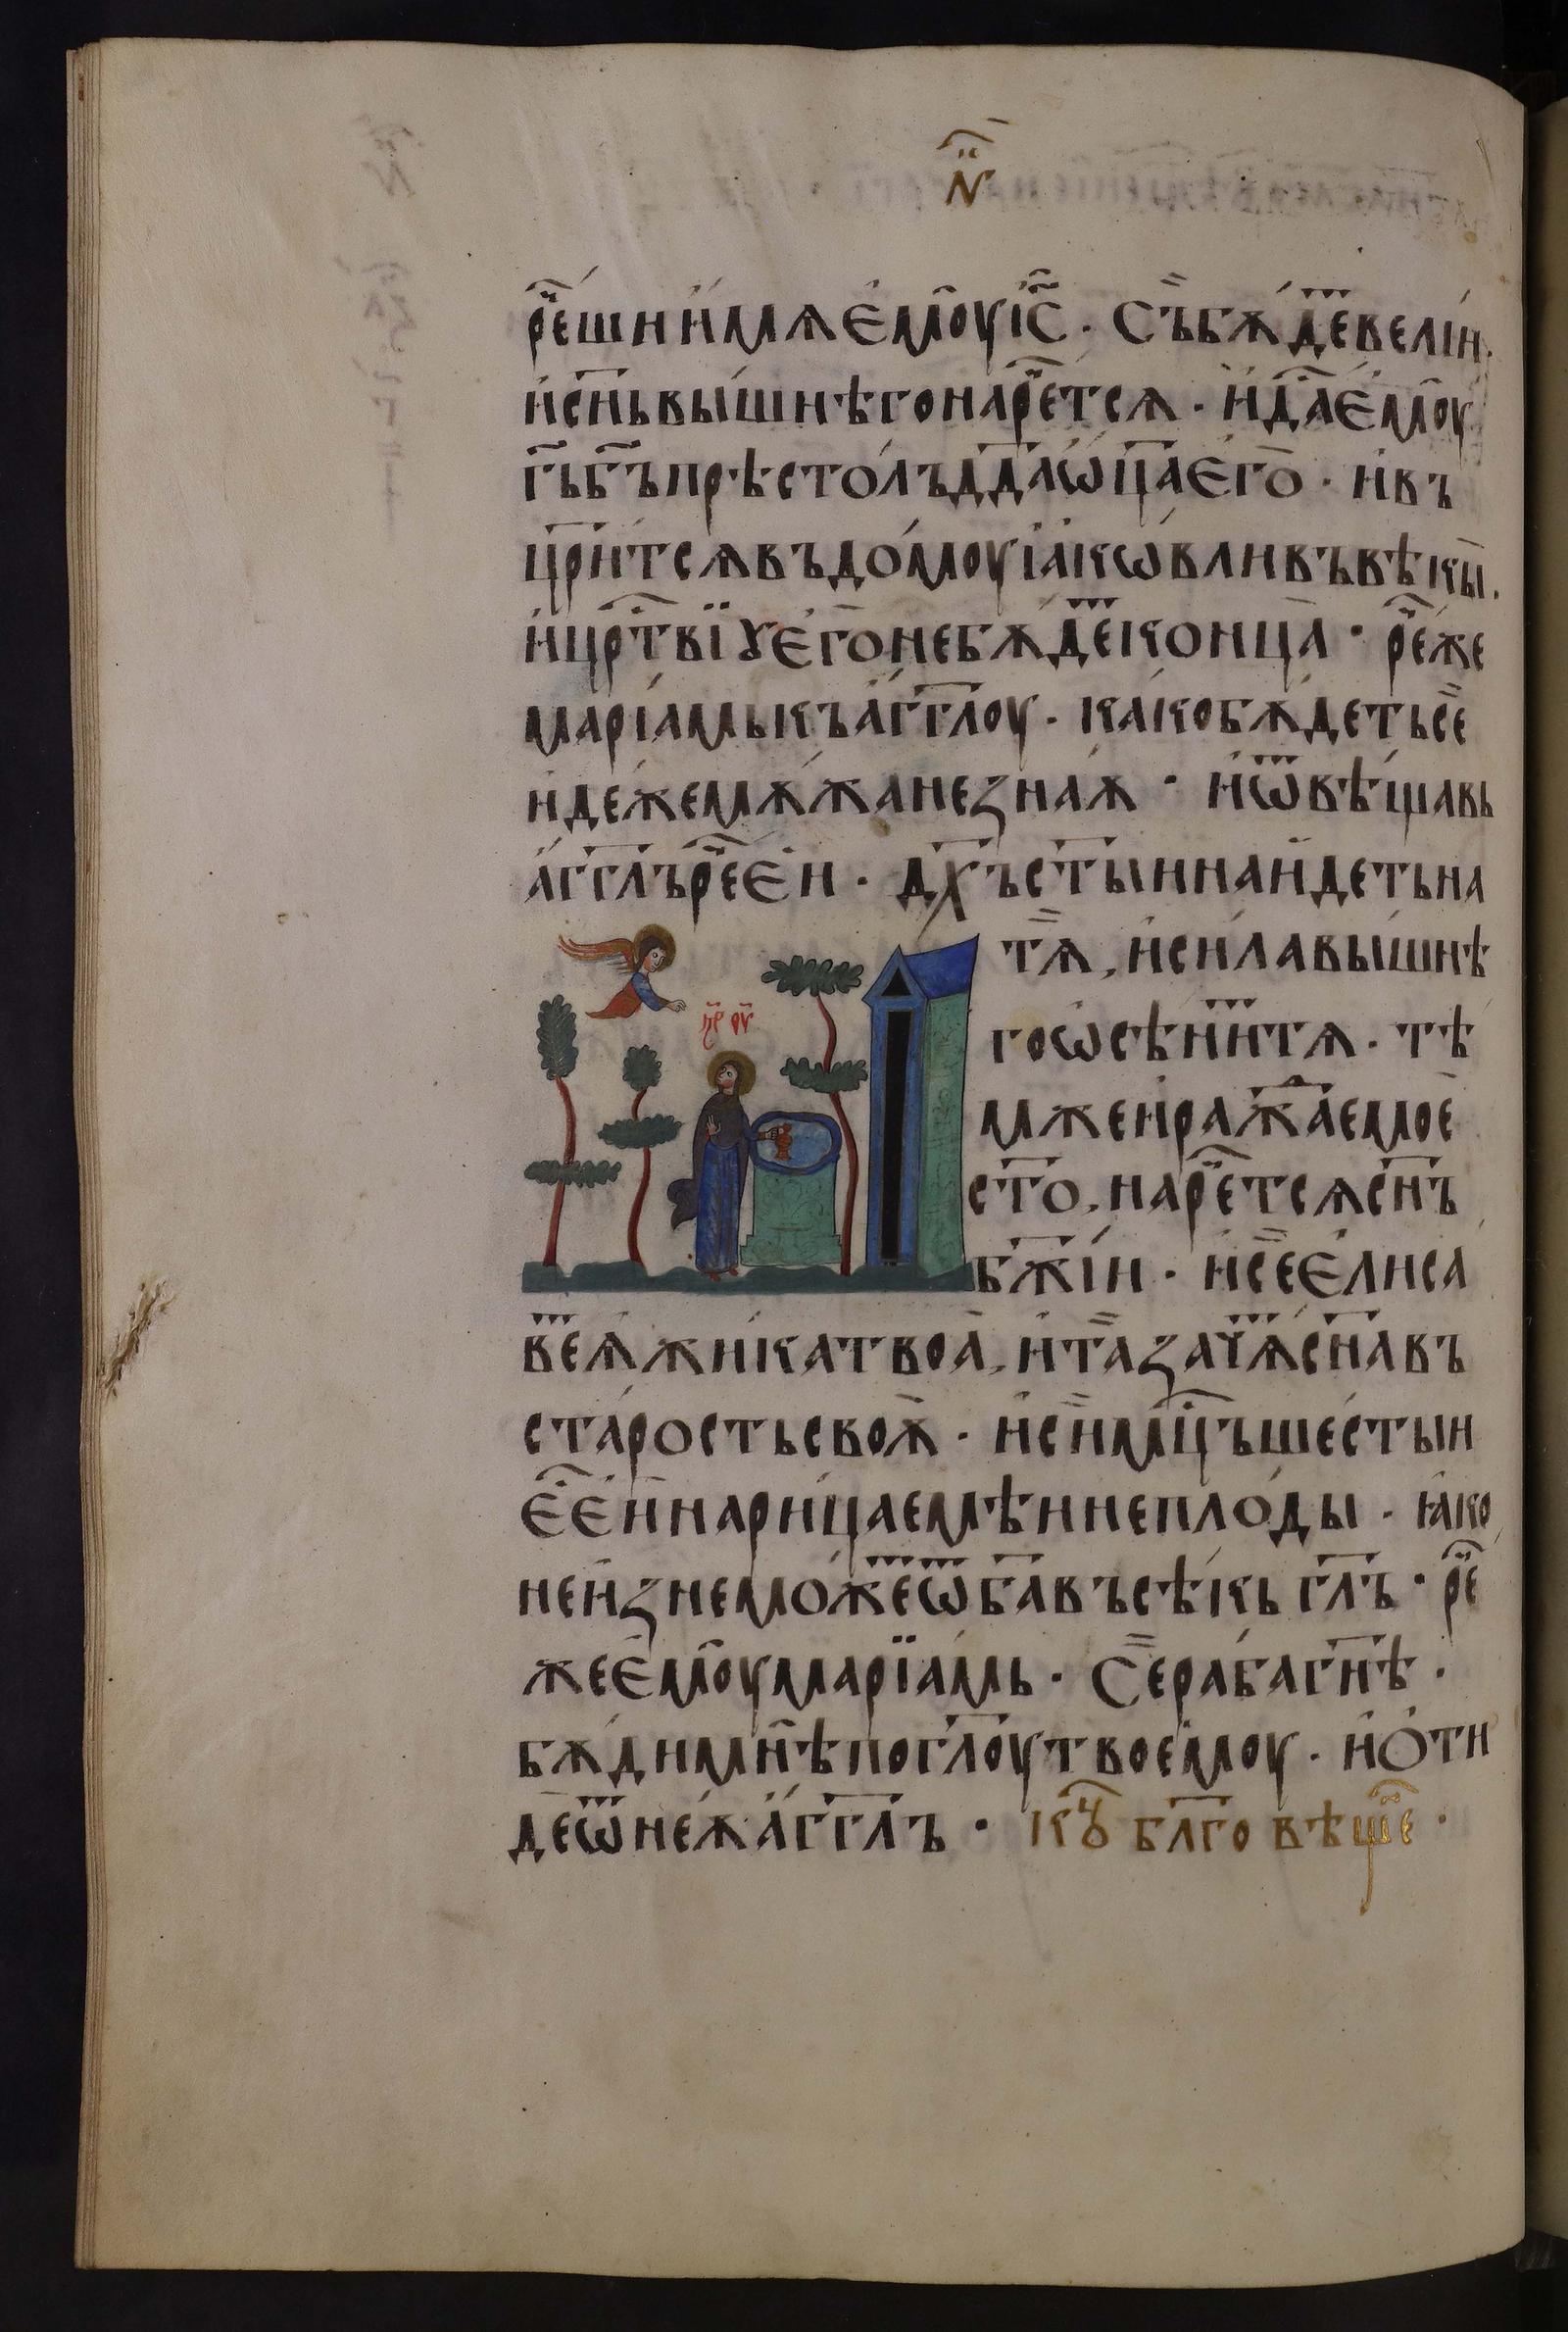 N҃
ре҃ши и́мѧ є҆моу і҆с҃ · Съ бѫ́де҃ велі́и ·
и҆ сн҃ь вы́шнѣго наре҃тсѧ · и҆ да҃ є҆моу
гь҃ бъ҃ прѣсто́лъ дд҃а ѡ҆ца҃ є҆го · и҆ въ
цр҃и́тсѧ въ до́моу і҆а́кѡвли въ вѣ́кы ·
и҆ цр҃тві́ꙋ є҆го не бѫ́де҃ конца · ре҃же
марі́амь къ а҆́гг҃лоу · ка́ко бѫ́деть се
и҆де́же мѫ́жа не зна́ѫ · и҆ ѿвѣ́щавь
а҆́гг҃лъ ре҃ є҆и · дх҃ъ ст҃ыи наи́деть на
тѧ, и҆ си́ла вы́шнѣ
го ѡ҆сѣни́тѧ · тѣ
мже и҆ ража҃емое
ст҃о, наре҃тсѧ сн҃ъ
бж҃і́и · и҆ се є҆лиса
ве҃ ѫ́жика твоа, и҆ та зачѧ҃ сн҃а въ
ста́рость своѫ · и҆ съи мц҃ъ ше́стыи
є҃ є҆и нари́цаемѣи непло́ды · ꙗ҆́ко
не и҆знемо́же҃ ѿ ба҃ въсѣ́кь гл҃ъ · ре҃
же є҆моу марїа́мь · Се раба́ гн҃ѣ ·
бѫ́ди мнѣ по гл҃оу твоемоу · и҆ ѻ҆ти
де ѿ неѫ́ а҆́гг҃лъ · кꙋ҃ бл҃говѣще҃ ·